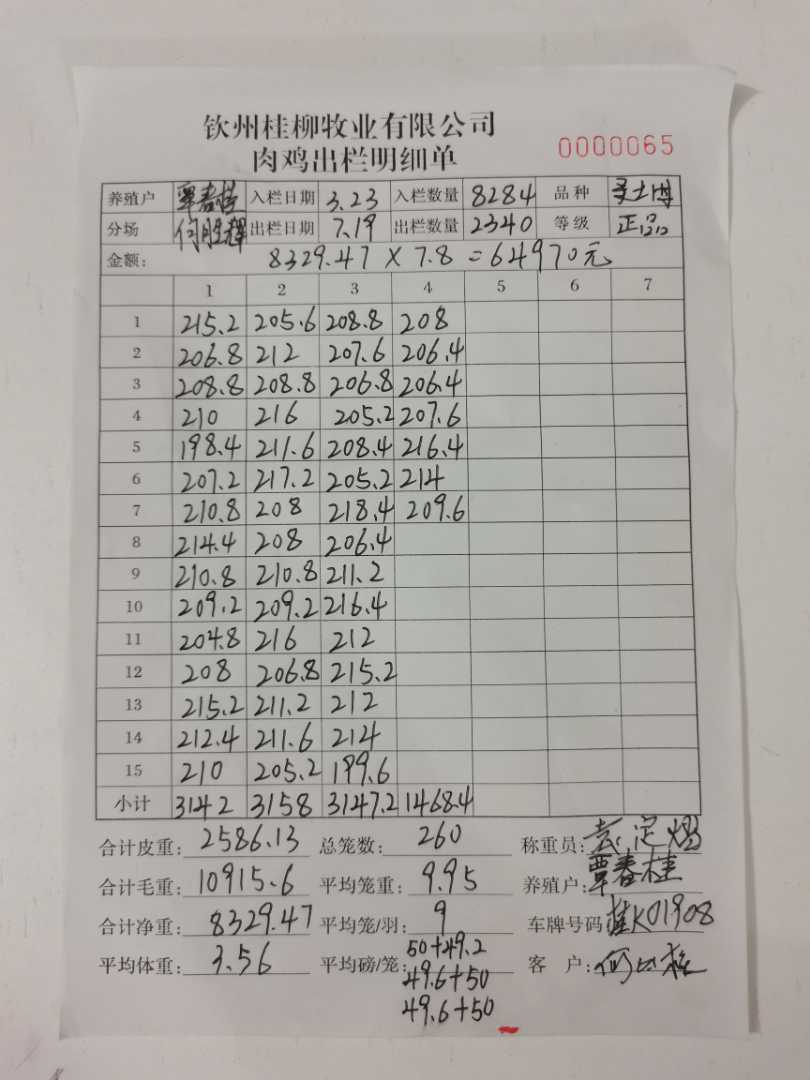 钦州桂柳牧业有限公司
肉鸡出栏明细单 0000065
养殖户 覃春桂 入栏日期 3.23 入栏数量 8284 品种
分场 何胜耀 出栏日期 7.19 出栏数量 2340 等级 正品
金额: 8329.47 X 7.8 = 64970元
1 2 3 4 5 6 7
1 215.2 205.6 208.8 208
2 206.8 212 207.6 206.4
3 208.8 208.8 206.8 206.4
4 210 216 205.2 207.6
5 198.4 211.6 208.4 216.4
6 207.2 217.2 205.2 214
7 210.8 208 218.4 209.6
8 214.4 208 206.4
9 210.8 210.8 211.2
10 209.2 209.2 216.4
11 204.8 216 212
12 208 206.8 215.2
13 215.2 211.2 212
14 212.4 211.6 214
15 210 205.2 199.6
小计 3142 3158 3147.2 1468.4
合计皮重: 2586.13 总笼数: 260 称重员:
合计毛重: 10915.6 平均笼重: 9.95 养殖户: 覃春桂
合计净重: 8329.47 平均笼/羽: 9 车牌号码: 桂K01908
平均体重: 3.56 平均磅/笼: 50+49.2 客户:
49.6+50
49.6+50